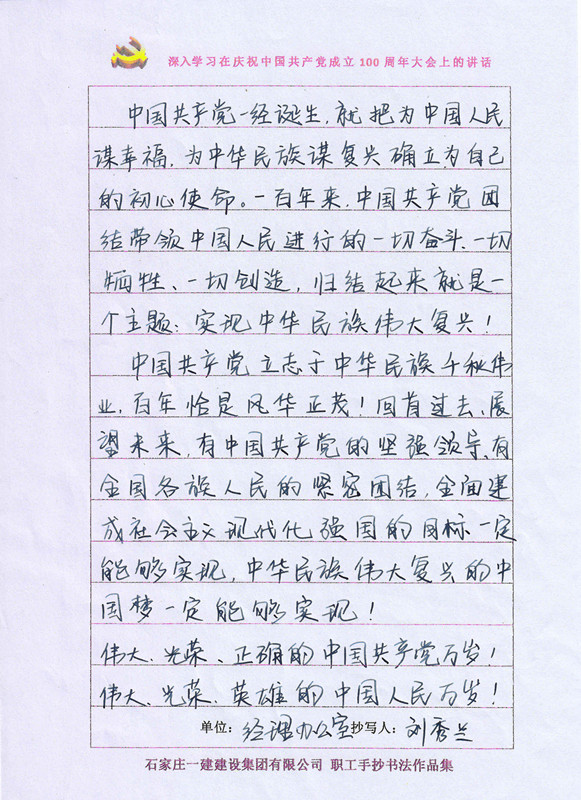 深入学习在庆祝中国共产党成立100周年大会上的讲话
中国共产党一经诞生,就把为中国人民
谋幸福,为中华民族谋复兴确立为自己
的初心使命。一百年来,中国共产党团
结带领中国人民进行的一切奋斗、一切
牺牲、一切创造,归结起来就是一
个主题:实现中华民族伟大复兴!
中国共产党立志于中华民族千秋伟
业,百年恰是风华正茂!回首过去、展
望未来,有中国共产党的坚强领导、有
全国各族人民的紧密团结,全面建
成社会主义现代化强国的目标一定
能够实现,中华民族伟大复兴的中
国梦一定能够实现!
伟大、光荣、正确的中国共产党万岁!
伟大、光荣、英雄的中国人民万岁!
单位:经理办公室抄写人:刘秀兰
石家庄一建建设集团有限公司 职工手抄书法作品集